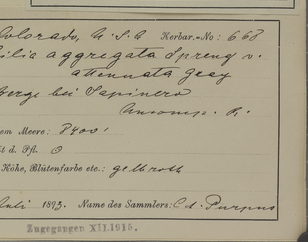 Colorado, U.S.A Herbar.-No: 668
ilia aggregata Spreng v.
attenuata Gray
Berge bei Sapinero
Uncomp. R.
em Meere: 8400'
it d. Pfl. O
Höhe, Blütenfarbe etc.: gelbroth
Juli 1893. Name des Sammlers: C. A. Purpus
Zugegangen XII.1915.